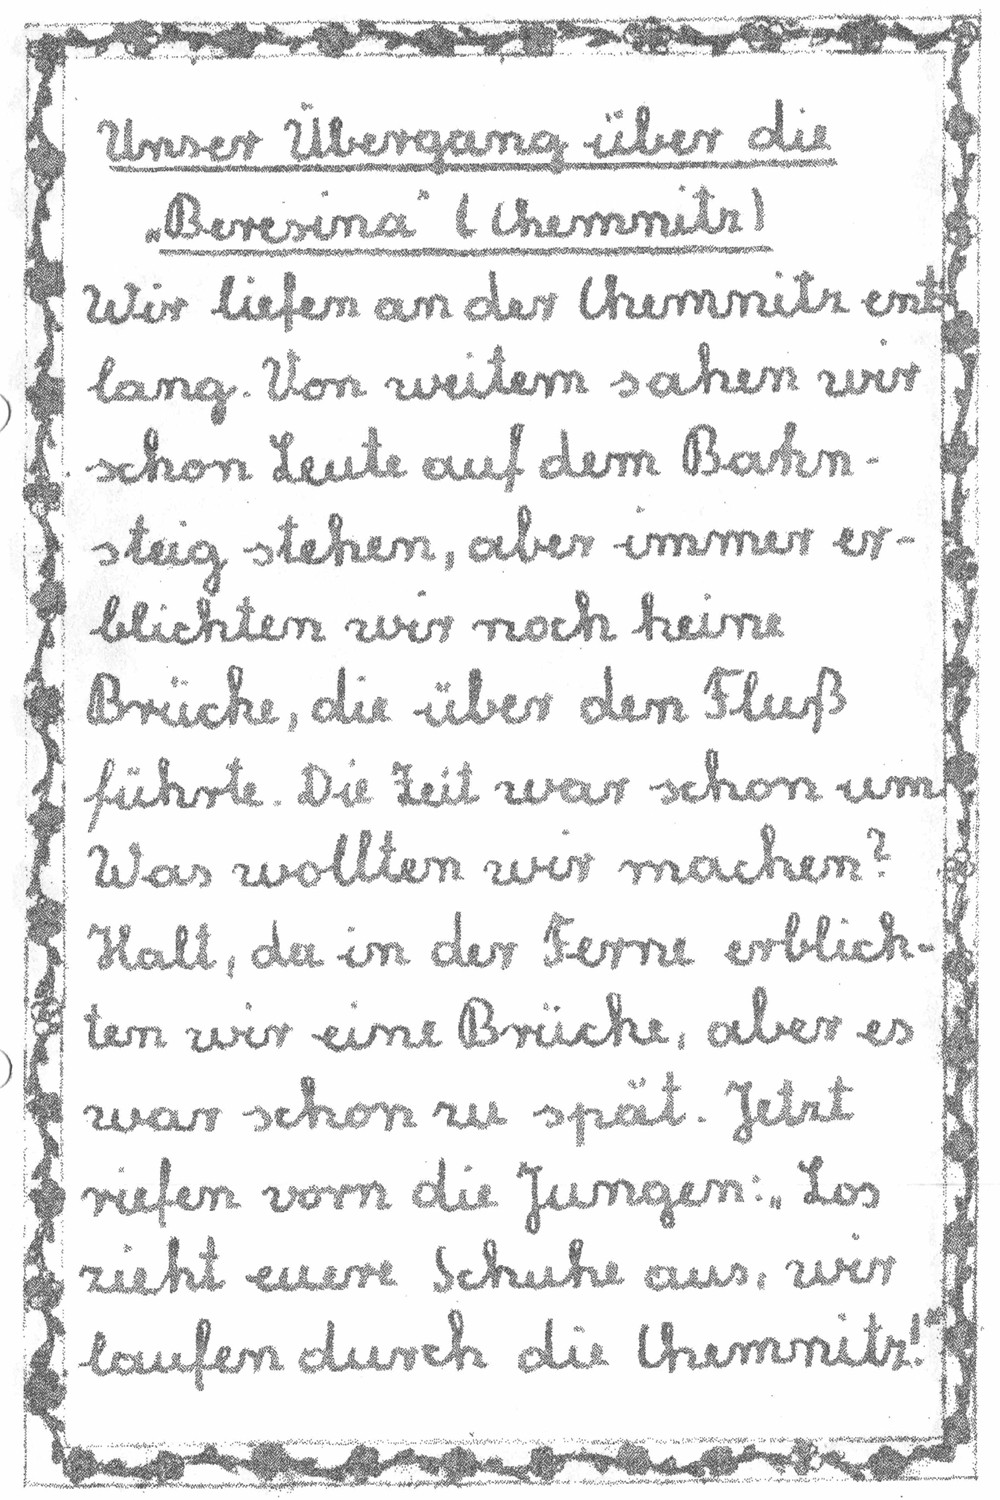 Unser Übergang über die
„Beresina" (Chemnitz)
Wir liefen an der Chemnitz ent-
lang. Von weitem sahen wir
schon Leute auf dem Bahn-
steig stehen, aber immer er-
blickten wir noch keine
Brücke, die über den Fluß
führte. Die Zeit war schon um.
Was wollten wir machen?
Halt, da in der Ferne erblick-
ten wir eine Brücke, aber es
war schon zu spät. Jetzt
riefen vorn die Jungen: „Los
zieht euere Schuhe aus, wir
laufen durch die Chemnitz!"